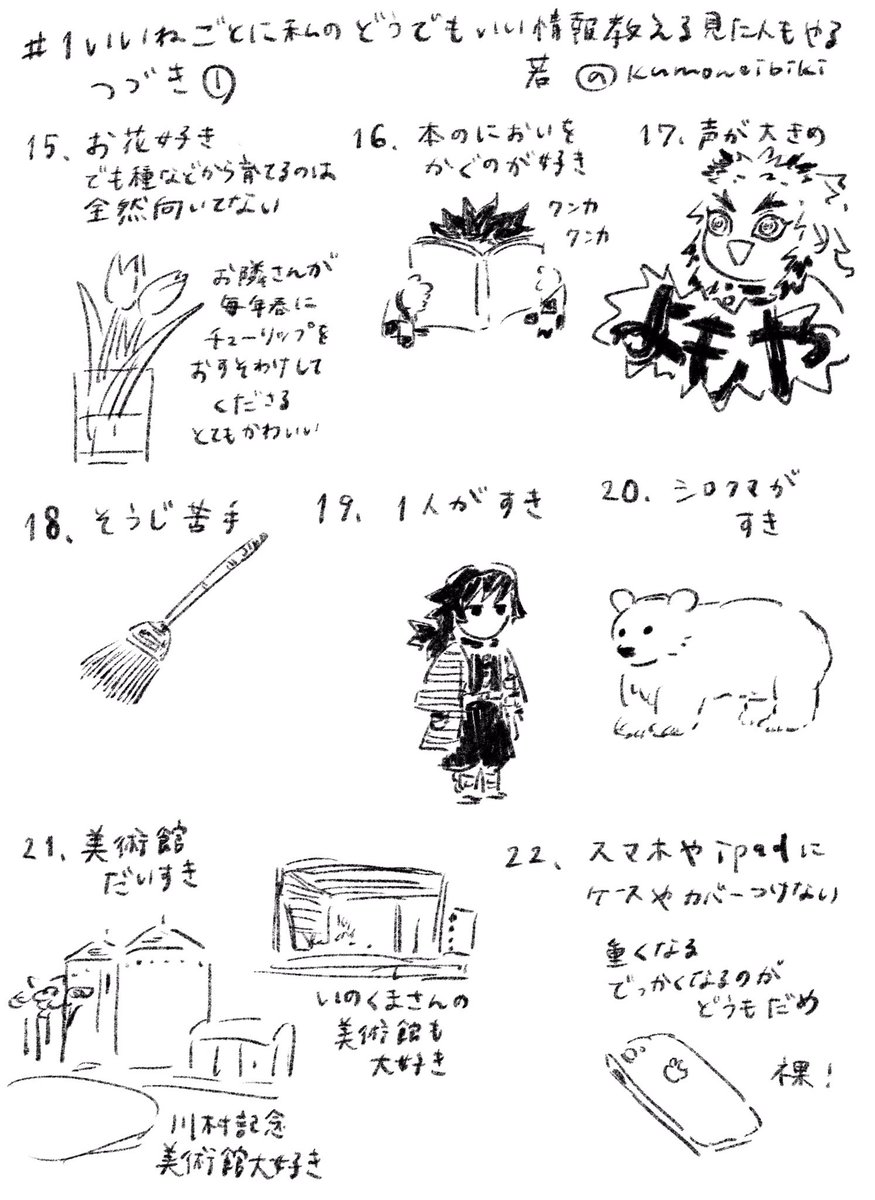 #1いいねごとに私のどうでもいい情報教える見た人もやる
つづき①
若 @kumoneibiki
15、お花好き
でも種などから育てるのは
全然向いてない
お隣さんが
毎年春に
チューリップを
おすそわけして
くださる
とてもかわいい
16、本のにおいを
かぐのが好き
クンカ
クンカ
17、声が大きめ
よもや
18、そうじ苦手
19、1人がすき
20、シロクマが
すき
21、美術館
だいすき
いのくまさんの
美術館も
大好き
川村記念
美術館大好き
22、スマホやipadに
ケースやカバーつけない
重くなる
でっかくなるのが
どうもだめ
裸!